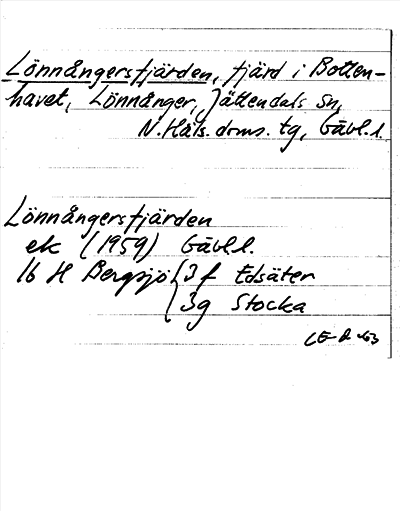 Lönnångersfjärden, fjärd i Botten-
havet, Lönnånger, Jättendals sn,
N. Häls. doms. tg, Gävl. l.
Lönnångersfjärden
ek (1959) Gävl. l.
16 H Bergsjö { 3 f Edsäter
3 g Stocka